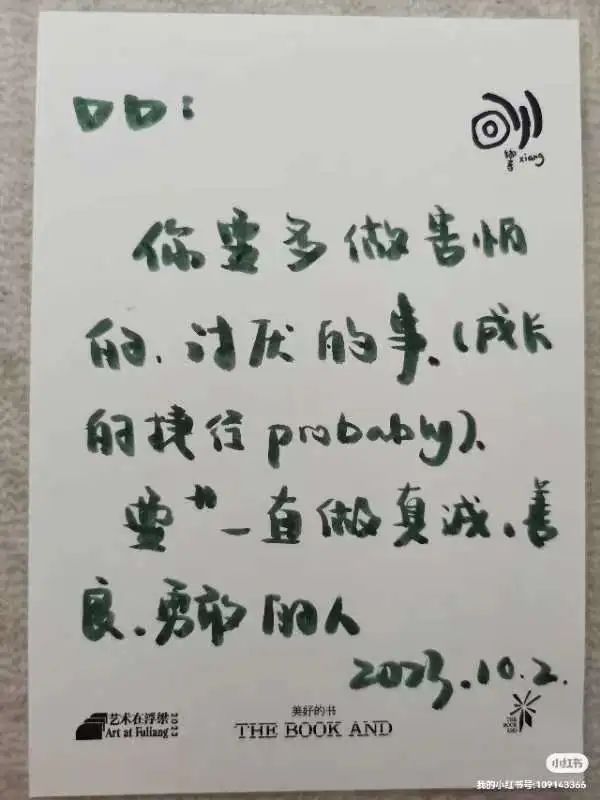 口口：
响
xiang
你要多做害怕
的、讨厌的事、(成长
的捷径 probably)、
要 一直做真诚、善
良、勇敢 的人
2023.10.2.
艺术在浮梁 2023
Art at Fuliang
美好的书
THE BOOK AND
THE BOOK AND
小红书
我的小红书号:109143366